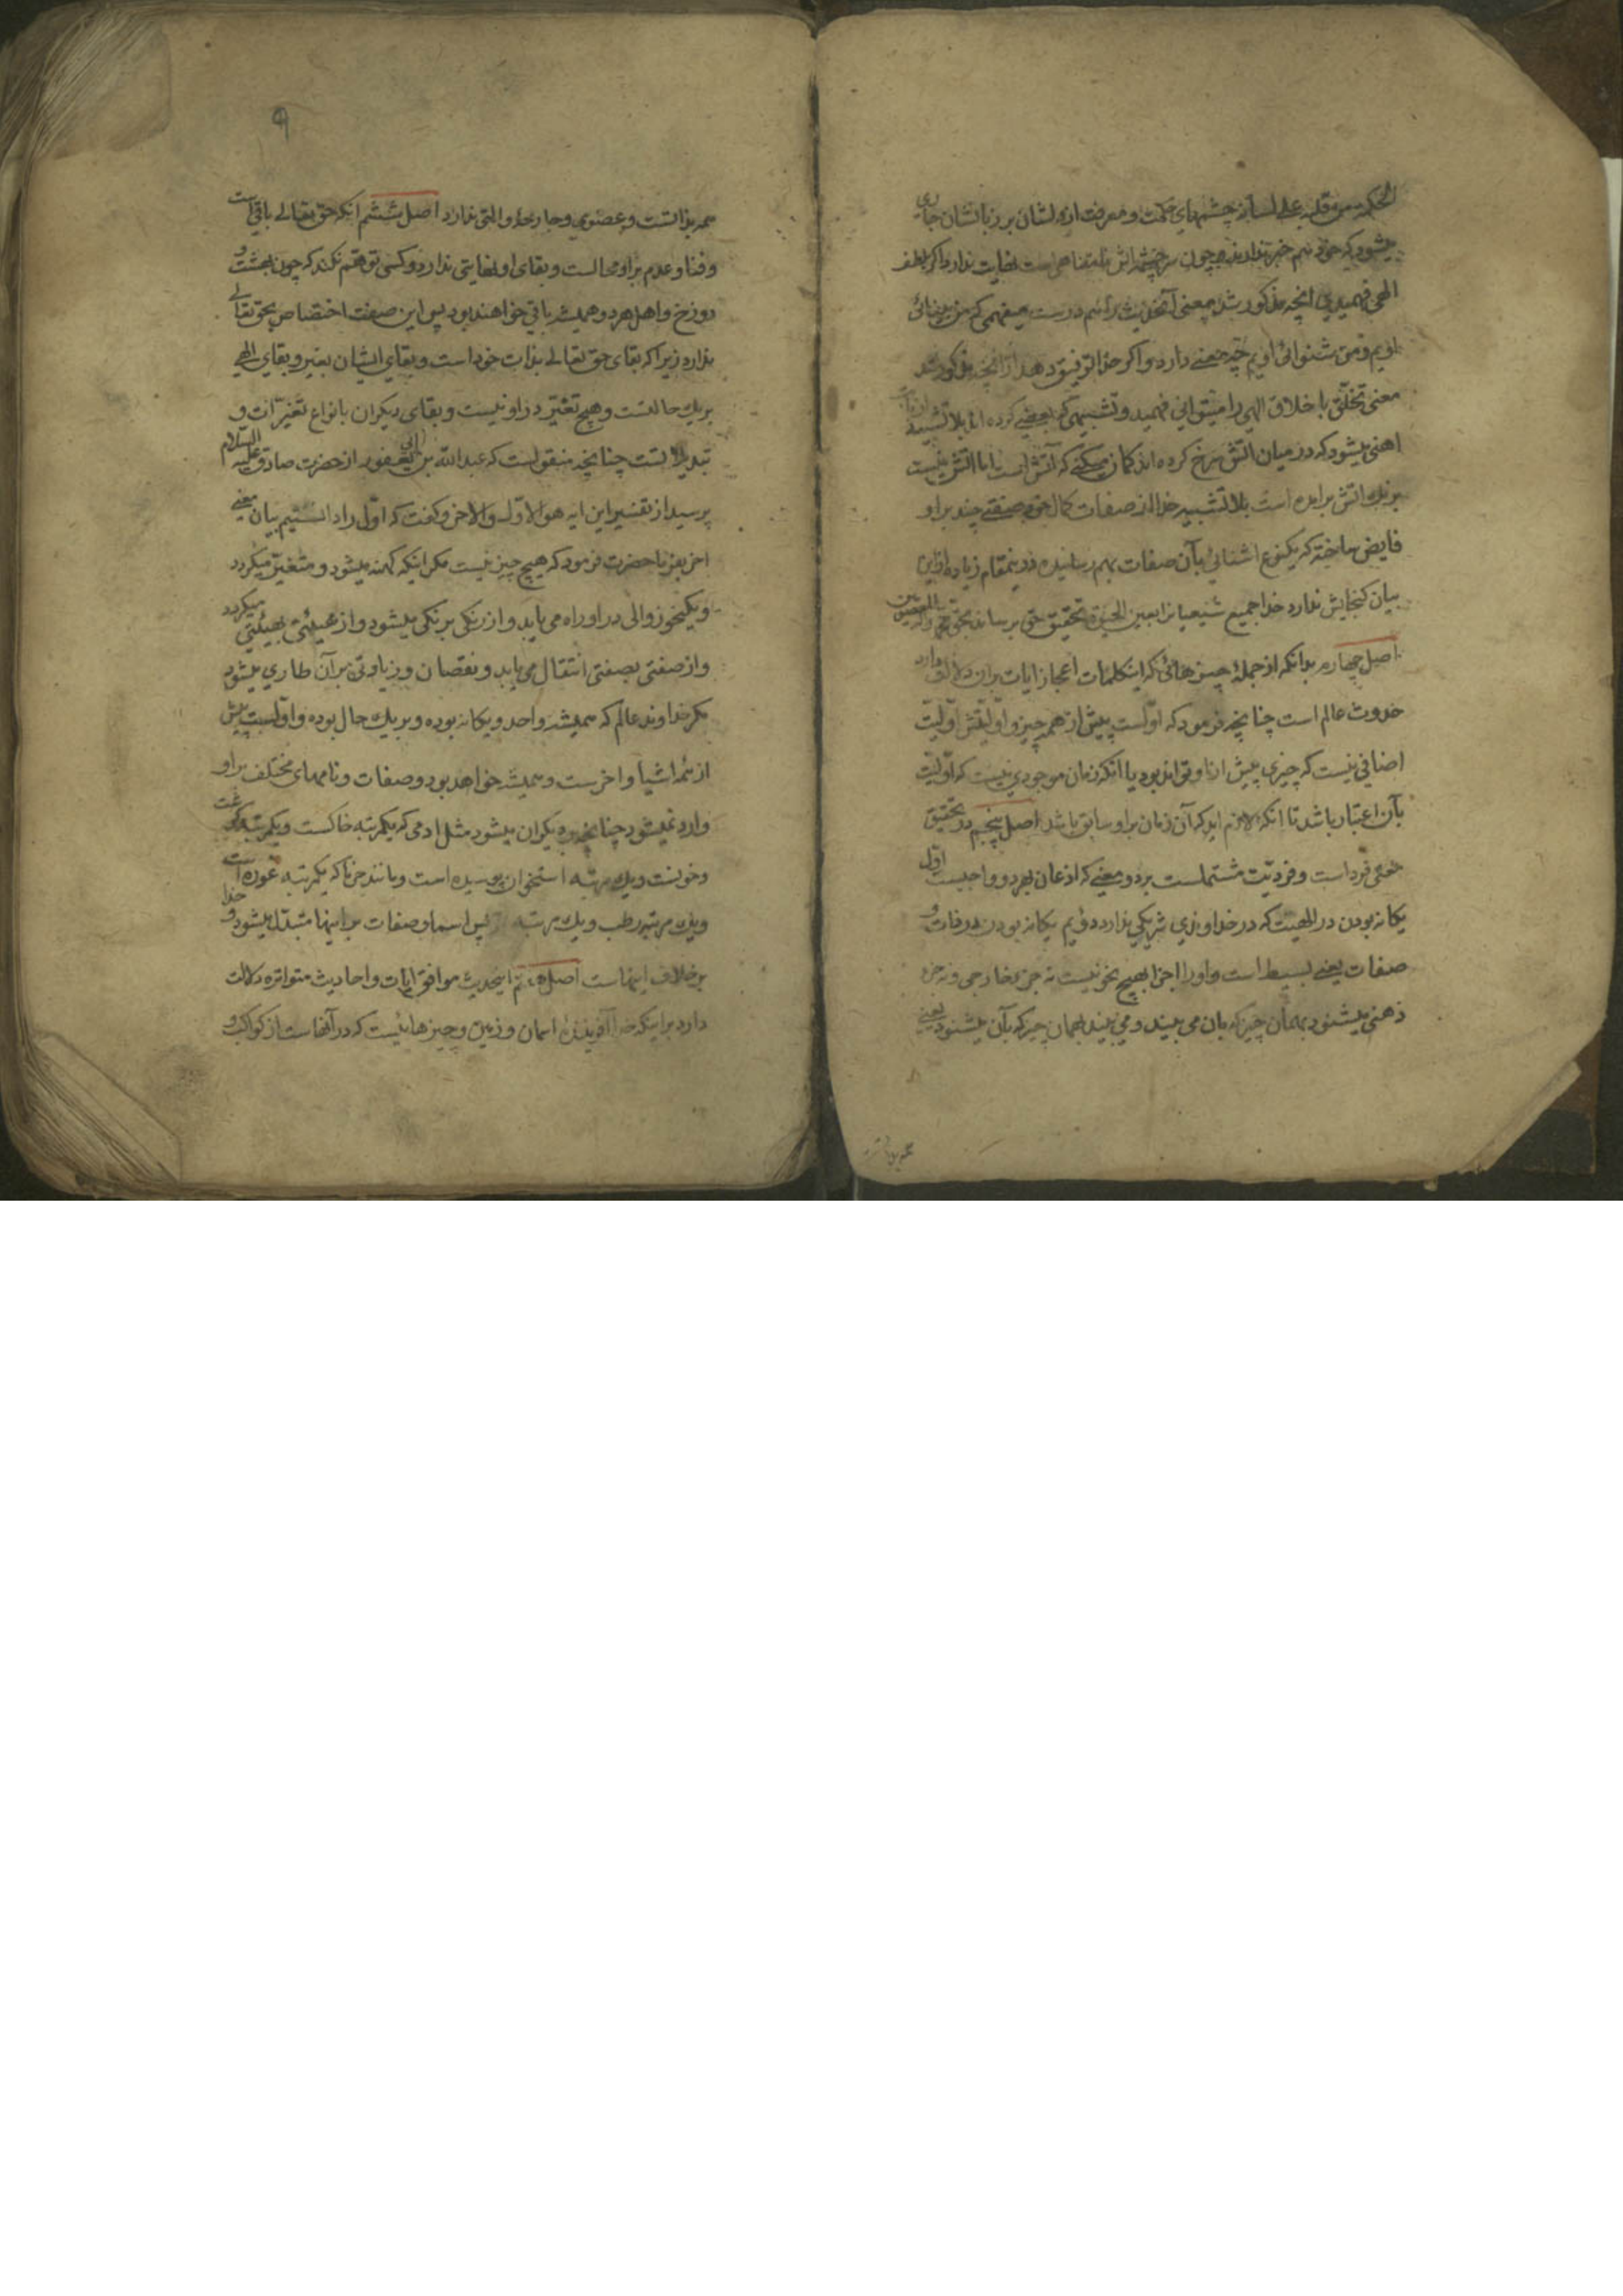 الحکمه من قلبه علی لسانه چشمهای حکمت و معرفت از دلشان بر زبانشان جاری
میشود که خود هم خبر ندارند و چون سرچشمه‌اش نامتناهی است نهایت ندارد و اگر بلطف
الهی فهمیدی آنچه مذکور شد معنی آنحدیث را هم درست میفهمی که من بینائی
اویم و من شنوائی اویم چه معنی دارد و اگر خدا توفیق دهد از آنچه مذکور شد
معنی تخلّق باخلاق الهی را میتوانی فهمید و تشبیهی که بعضی کرده‌اند بلاتشبیه
اهنی میشود که در میان آتش سرخ کرده‌اند کمان میکنی که آتش است اما آتش نیست
برنک اتش برامده است بلاتشبیه خدا از صفات کمال خود صفتی چند بر او
فایض ساخته که یکنوع اشنائی بآن صفات بهم رسانیده و درینمقام زیاده ازاین
بیان کنجایش ندارد خدا جمیع شیعیانرا بعین الحیوة تحقیق حق برساند بحق محمد و آله
اصل چهارم بدانکه از جملهٔ چیزهائی که اینکلمات اعجاز ایات بران دلالت دارد
حدوث عالم است چنانچه فرمود که اولست پیش از همه چیز و اولیتش اولیت
اضافی نیست که چیزی پیش ازاو تواند بود یا آنکه زمان موجودی نیست که اولیت
بآن اعتبار باشد تا آنکه لازم اید که آن زمان براو سابق باشد اصل پنجم در تحقیق
معنی فرد است و فردیت مشتملست بر دو معنی که اذعان بهر دو واجبست اول
یکانه بودن در الهیت که در خداوندی شریکی ندارد دویم یکانه بودن در ذات و
صفات یعنی بسیط است و اورا اجزا بهیچ نحو نیست نه جزء خارجی و نه جزء
ذهنی میشنود بهمان چیز که بان می بیند و می بیند بهمان چیز که بآن میشنود یعنی
همه بذاتست
۹
همه بذاتست و عضوی و جارحهٔ والتی ندارد اصل ششم انکه حق تعالی باقی است
و فنا و عدم براو محالست و بقای او نهایتی ندارد و کسی توهّم نکند که چون بهشت و
دوزخ و اهل هر دو همیشه باقی خواهند بود پس این صفت اختصاص بحق تعالی
ندارد زیرا که بقای حق تعالی بذات خود است و بقای ایشان بغیر و بقای الهی
بریک حالتست و هیچ تغیّر در او نیست و بقای دیکران بانواع تغیّرات و
تبدیلاتست چنانچه منقولست که عبدالله بن ابی یعفور از حضرت صادق علیه السلام
پرسید از تفسیر این ایه هو الاول والاخر و کفت که اول را دانستیم بیان معنی
اخر بفرما حضرت فرمود که هیچ چیز نیست مکر اینکه کهنه میشود و متغیّر میکردد
و یکنحو زوالی در او راه می یابد و از رنکی برنکی میشود و از هیئتی بهیئتی میکردد
واز صفتی بصفتی انتقال می یابد و نقصان و زیادتی برآن طاری میشود
مکر خداوند عالم که همیشه واحد و یکانه بوده و بریک حال بوده و اولست پیش
از همه اشیا و اخرست و همیشه خواهد بود و صفات و نامهای مختلف براو
وارد نمیشود چنانچه بر دیکران میشود مثل ادمی که یکمرتبه خاکست و یکمرتبه کوشت
و خونست و یک مرتبه استخوان پوسیده است و مانند خرما که یکمرتبه غوره است
و یک مرتبه رطب و یک مرتبه پس اسما و صفات براینها متبدّل میشود و خدا
برخلاف اینهاست اصل هفتم اینحدیث موافق ایات و احادیث متواتره دلالت
دارد براینکه خدا آفرینندهٔ اسمان و زمین و چیزهائیست که در آنهاست از کواکب و